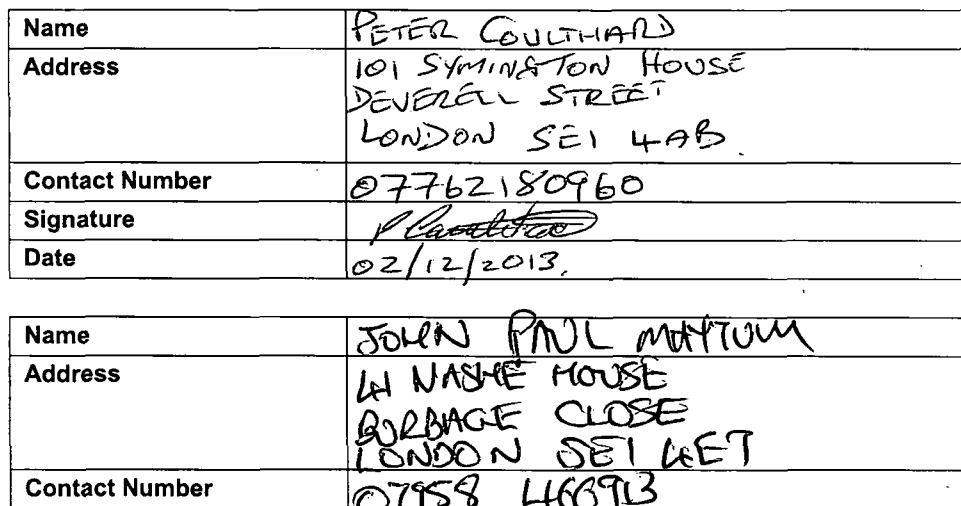 Name PETER COULTHARD
Address 101 SYMINGTON HOUSE
DEVERELL STREET
LONDON SE1 4AB
Contact Number 07762180960
Signature P Coulthard
Date 02/12/2013
Name JOHN PAUL MAYTUM
Address 41 NASHE HOUSE
BURBAGE CLOSE
LONDON SE1 4ET
Contact Number 07958